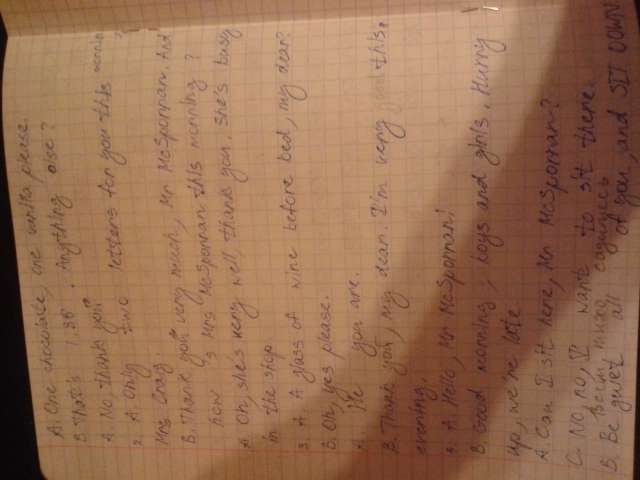 A. One chocolate, one vanilla please.
B. That's 1,85 . Anything else?
A. No, thank you
2. A. Only two letters for you this morning,
Mrs Craig.
B. Thank you very much, Mr McSporran. And
how 's Mrs McSporran this morning ?
A. Oh, she's very well, thank you. She's busy
in the shop
3. A. A glass of wine before bed, my dear?
B. Oh, yes please.
A. He you are.
B. Thank you, my dear. I'm very this.
evening.
3. A. Hello, Mr McSporran!
B. Good morning, boys and girls. Hurry
up, we're late
A. Can I sit here, Mr McSporran?
C. No, no, I want to sit there.
Всем тихо садитесь
B. Be quiet all of you, and SIT DOWN